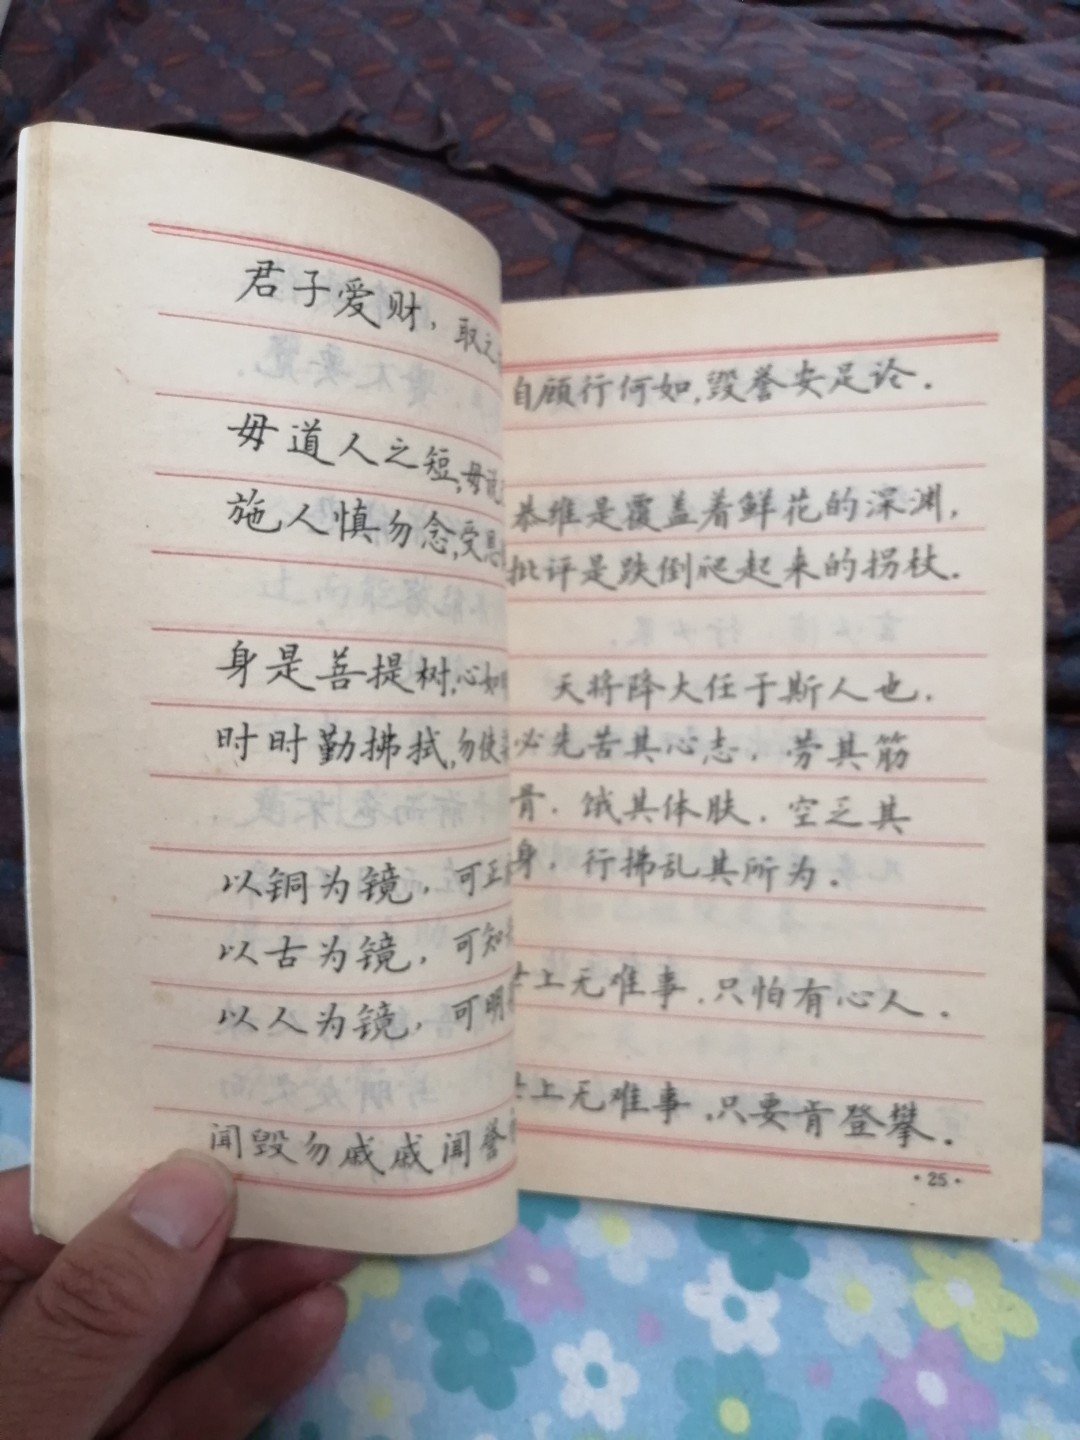 君子爱财，取之
毋道人之短，毋说
施人慎勿念，受恩
身是菩提树，心如明
时时勤拂拭，勿使
以铜为镜，可正
以古为镜，可知
以人为镜，可明
闻毁勿戚戚闻誉
自顾行何如，毁誉安足论．
恭维是覆盖着鲜花的深渊，
批评是跌倒爬起来的拐杖．
天将降大任于斯人也．
必先苦其心志，劳其筋
骨．饿其体肤．空乏其
身，行拂乱其所为．
世上无难事．只怕有心人．
世上无难事．只要肯登攀．
·25·